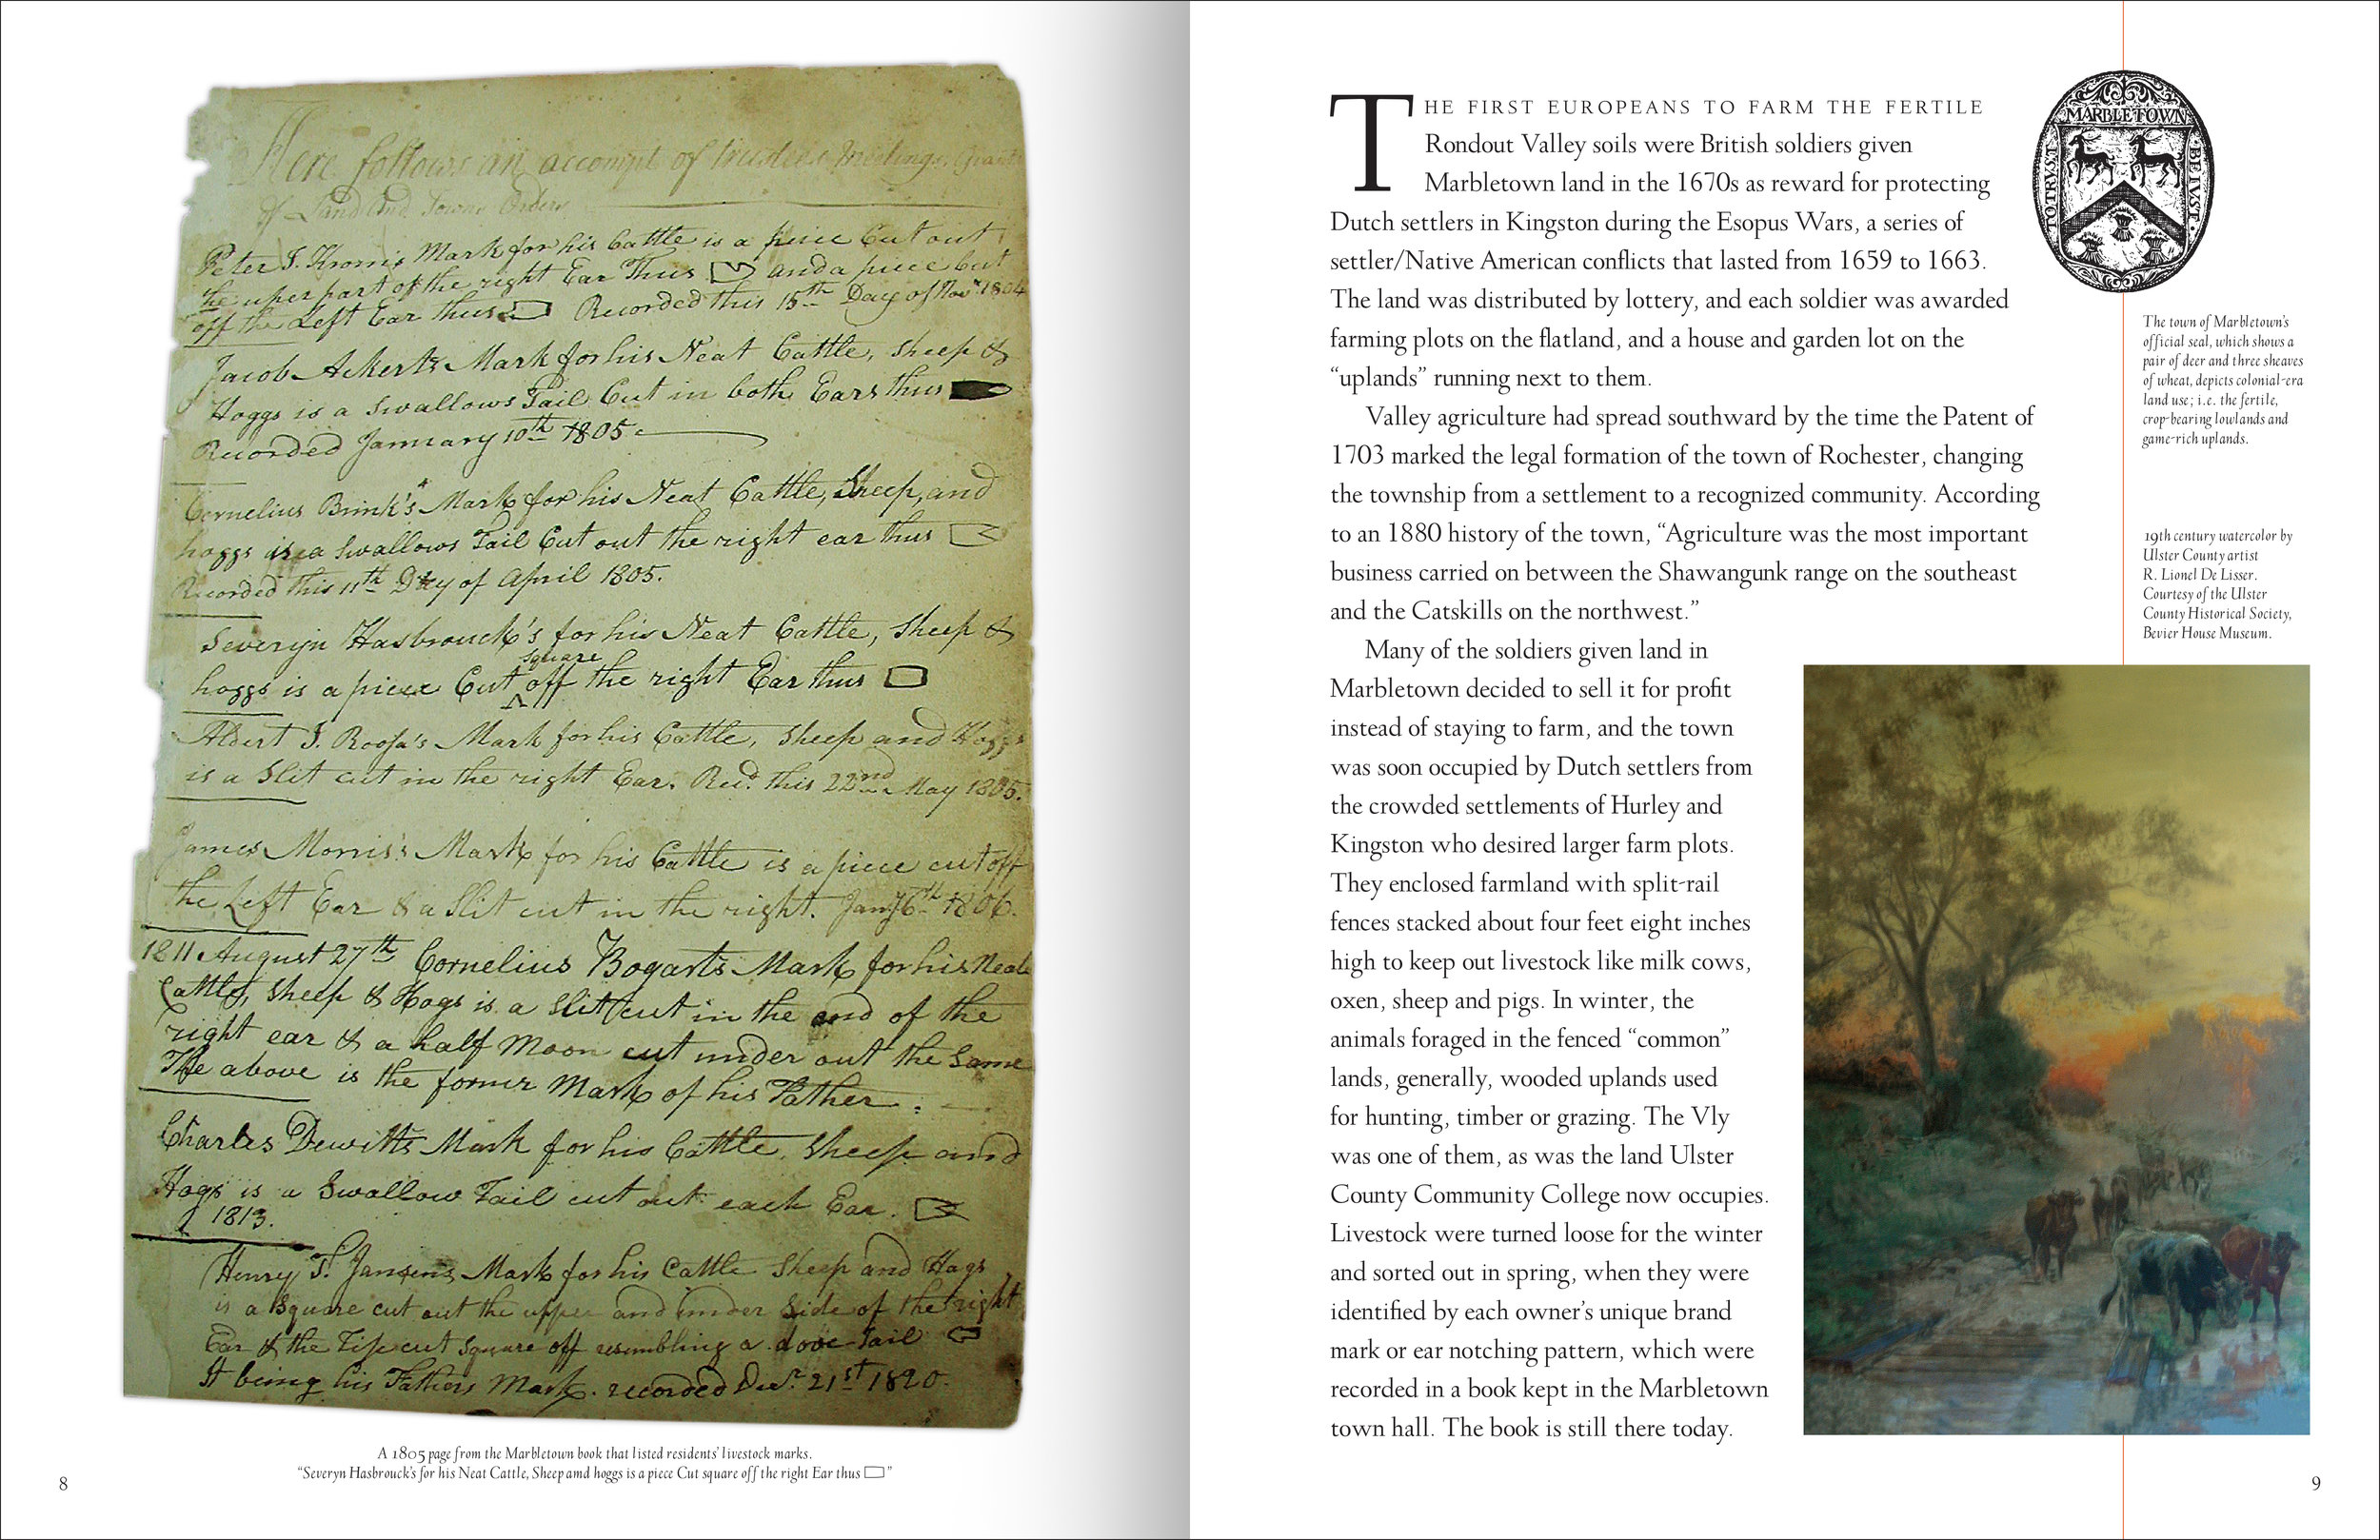 Here follows an accompt of trustees Meetings, Grants
of Land and Towns Orders
Peter J. Krom's Mark for his Cattle is a piece Cut out
the uper part of the right Ear Thus and a piece Cut
off the Left Ear thus Recorded this 15th Day of Novr. 1804
Jacob Ackerts Mark for his Neat Cattle, Sheep &
Hoggs is a Swallows Tail Cut in both Ears thus
Recorded January 10th 1805
Cornelius Brink's Mark for his Neat Cattle, Sheep, and
hoggs is a Swallows Tail Cut out the right ear thus
Recorded this 11th Day of April 1805.
Severyn Hasbrouck's for his Neat Cattle, Sheep &
square
hoggs is a piece Cut off the right Ear thus
Albert J. Roosa's Mark for his Cattle, Sheep and Hoggs
is a Slit cut in the right Ear. Recd. this 22nd May 1805.
James Morris's Mark for his Cattle is a piece cut off
the Left Ear & a Slit cut in the right. Jany 6th 1806.
1811 August 27th Cornelius Bogarts Mark for his Neat
Cattle, Sheep & Hogs is a Slit cut in the end of the
right ear & a half Moon cut under out the Same
The above is the former Mark of his Father.
Charles Dewitts Mark for his Cattle, Sheep and
Hogs is a Swallow Tail cut out each Ear.
1813.
Henry T. Jansens Mark for his Cattle Sheep and Hogs
is a Square cut out the upper and under Side of the right
Ear & the Tip cut Square off resembling a dove Tail
It being his Fathers Mark. recorded Decr. 21st 1820.
A 1805 page from the Marbletown book that listed residents' livestock marks.
“Severyn Hasbrouck's for his Neat Cattle, Sheep amd hoggs is a piece Cut square off the right Ear thus ”
8
THE FIRST EUROPEANS TO FARM THE FERTILE
Rondout Valley soils were British soldiers given
Marbletown land in the 1670s as reward for protecting
Dutch settlers in Kingston during the Esopus Wars, a series of
settler/Native American conflicts that lasted from 1659 to 1663.
The land was distributed by lottery, and each soldier was awarded
farming plots on the flatland, and a house and garden lot on the
“uplands” running next to them.
Valley agriculture had spread southward by the time the Patent of
1703 marked the legal formation of the town of Rochester, changing
the township from a settlement to a recognized community. According
to an 1880 history of the town, “Agriculture was the most important
business carried on between the Shawangunk range on the southeast
and the Catskills on the northwest.”
Many of the soldiers given land in
Marbletown decided to sell it for profit
instead of staying to farm, and the town
was soon occupied by Dutch settlers from
the crowded settlements of Hurley and
Kingston who desired larger farm plots.
They enclosed farmland with split-rail
fences stacked about four feet eight inches
high to keep out livestock like milk cows,
oxen, sheep and pigs. In winter, the
animals foraged in the fenced “common”
lands, generally, wooded uplands used
for hunting, timber or grazing. The Vly
was one of them, as was the land Ulster
County Community College now occupies.
Livestock were turned loose for the winter
and sorted out in spring, when they were
identified by each owner's unique brand
mark or ear notching pattern, which were
recorded in a book kept in the Marbletown
town hall. The book is still there today.
MARBLETOWN
TOTRVST
BEIVST
The town of Marbletown's
official seal, which shows a
pair of deer and three sheaves
of wheat, depicts colonial-era
land use; i.e. the fertile,
crop-bearing lowlands and
game-rich uplands.
19th century watercolor by
Ulster County artist
R. Lionel De Lisser.
Courtesy of the Ulster
County Historical Society,
Bevier House Museum.
9